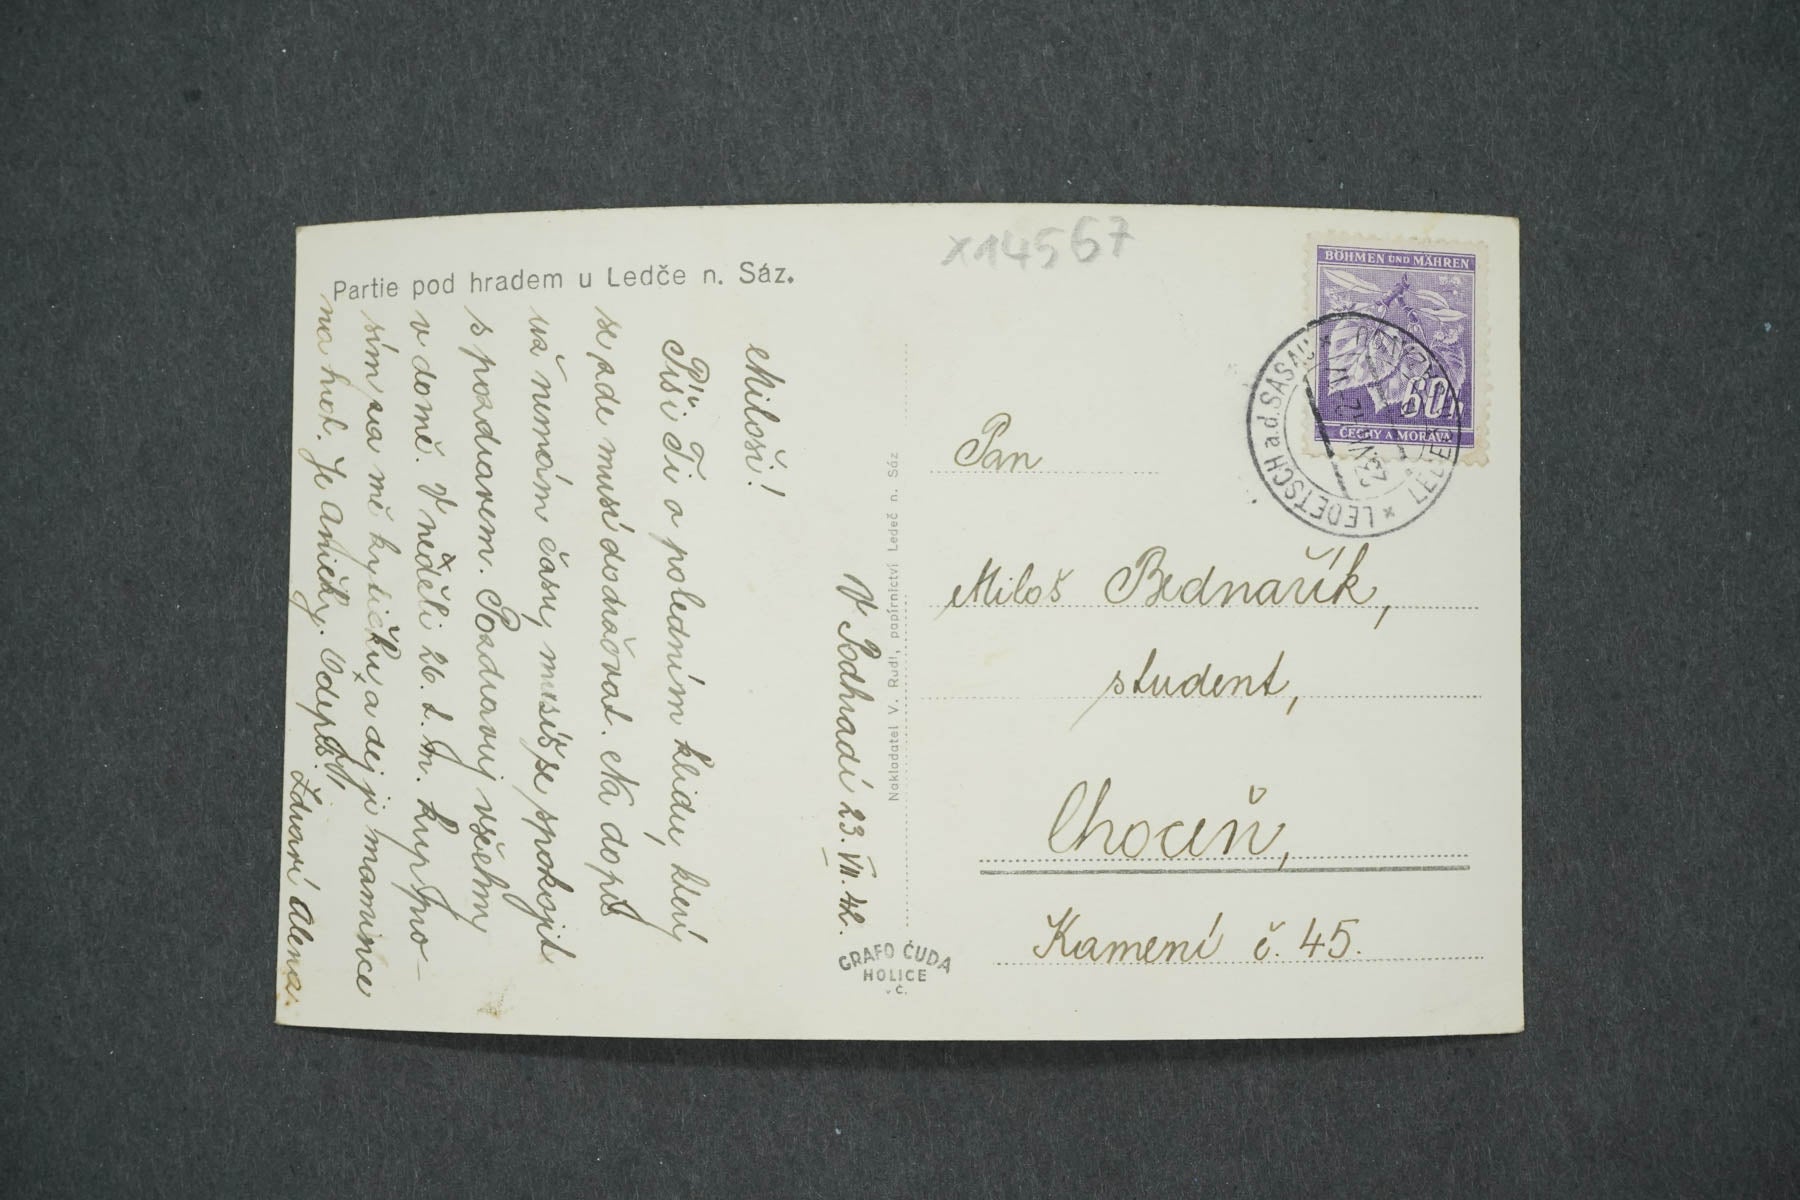 x14567
Partie pod hradem u Ledče n. Sáz.
V Podhradí 23. VII. 42.
Miloši!
Píši Ti o poledním klidu, který
se zde musí dodržovat. Na dopis
už nemám času, musíš se spokojit
s pozdravem. Pozdravuj všechny
v domě. V neděli 26. t. m. kup pro-
sím za mě kytičku, a dej ji mamince
na hrob. Je Aničky. Odepiš!
Zdraví Alena.
Nakladatel V. Rudl, papírnictví Ledeč n. Sáz
GRAFO ČUDA
HOLICE
v Č.
BÖHMEN UND MÄHREN
60h
ČECHY A MORAVA
LEDETSCH a.d. SASAU
23.VII.42
Pan
Miloš Bednařík,
student,
Choceň,
Kamení č. 45.